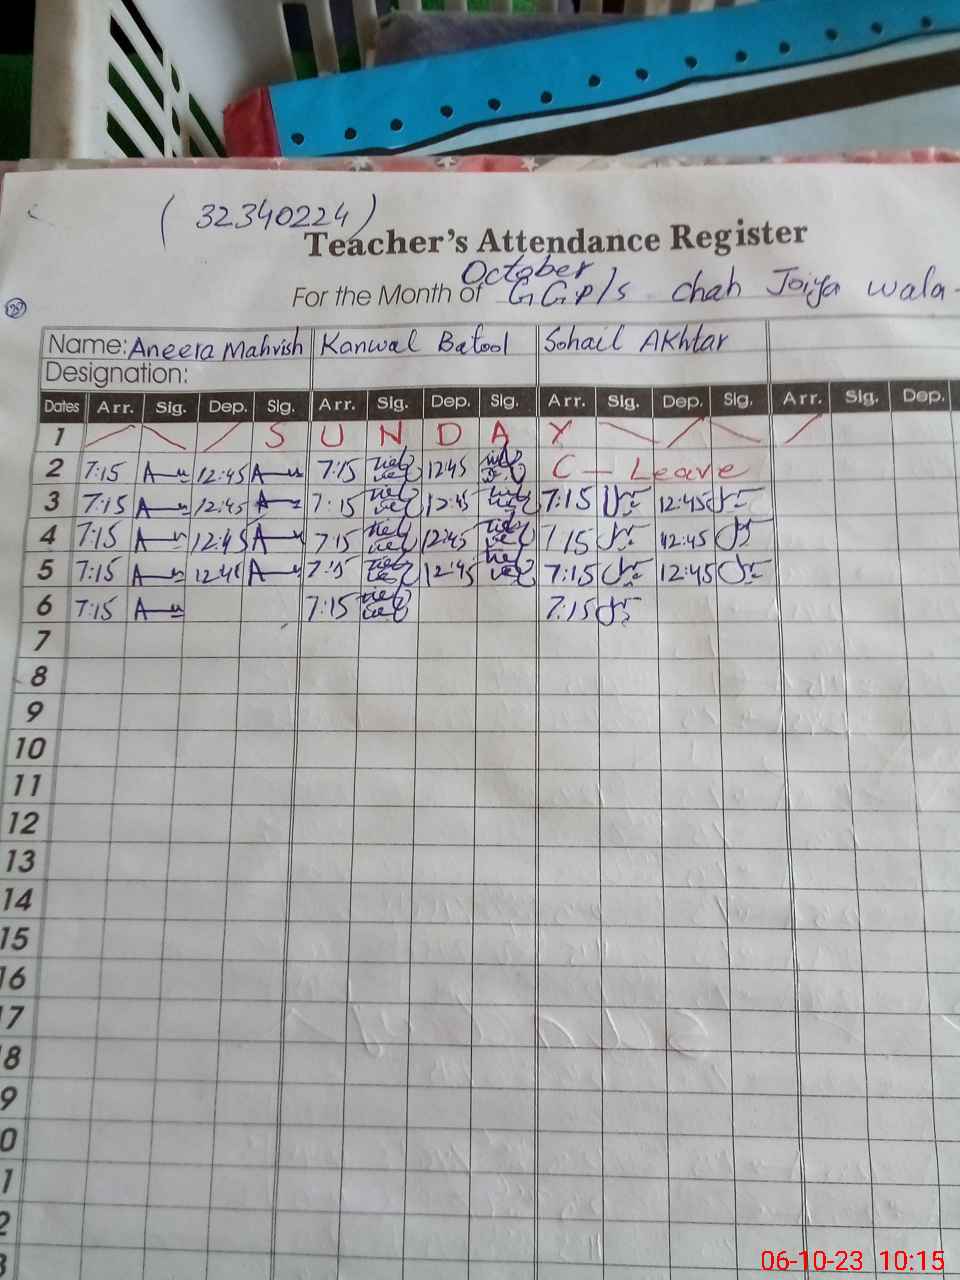 (32340224)
Teacher's Attendance Register
October
For the Month of GGP/S chah Joiya wala-
Name: Aneera Mahvish Kanwal Batool Sohail Akhtar
Designation:
Dates Arr. Sig. Dep. Sig. Arr. Sig. Dep. Sig. Arr. Sig. Dep. Sig. Arr. Sig. Dep.
1 S U N D A Y
2 7:15 12:45 7:15 12:45 C - Leave
3 7:15 12:45 7:15 12:45 7:15 12:45
4 7:15 12:45 7:15 12:45 7:15 12:45
5 7:15 12:45 7:15 12:45 7:15 12:45
6 7:15 7:15 7:15
7
8
9
10
11
12
13
14
15
16
7
8
9
0
1
2
3
06-10-23 10:15